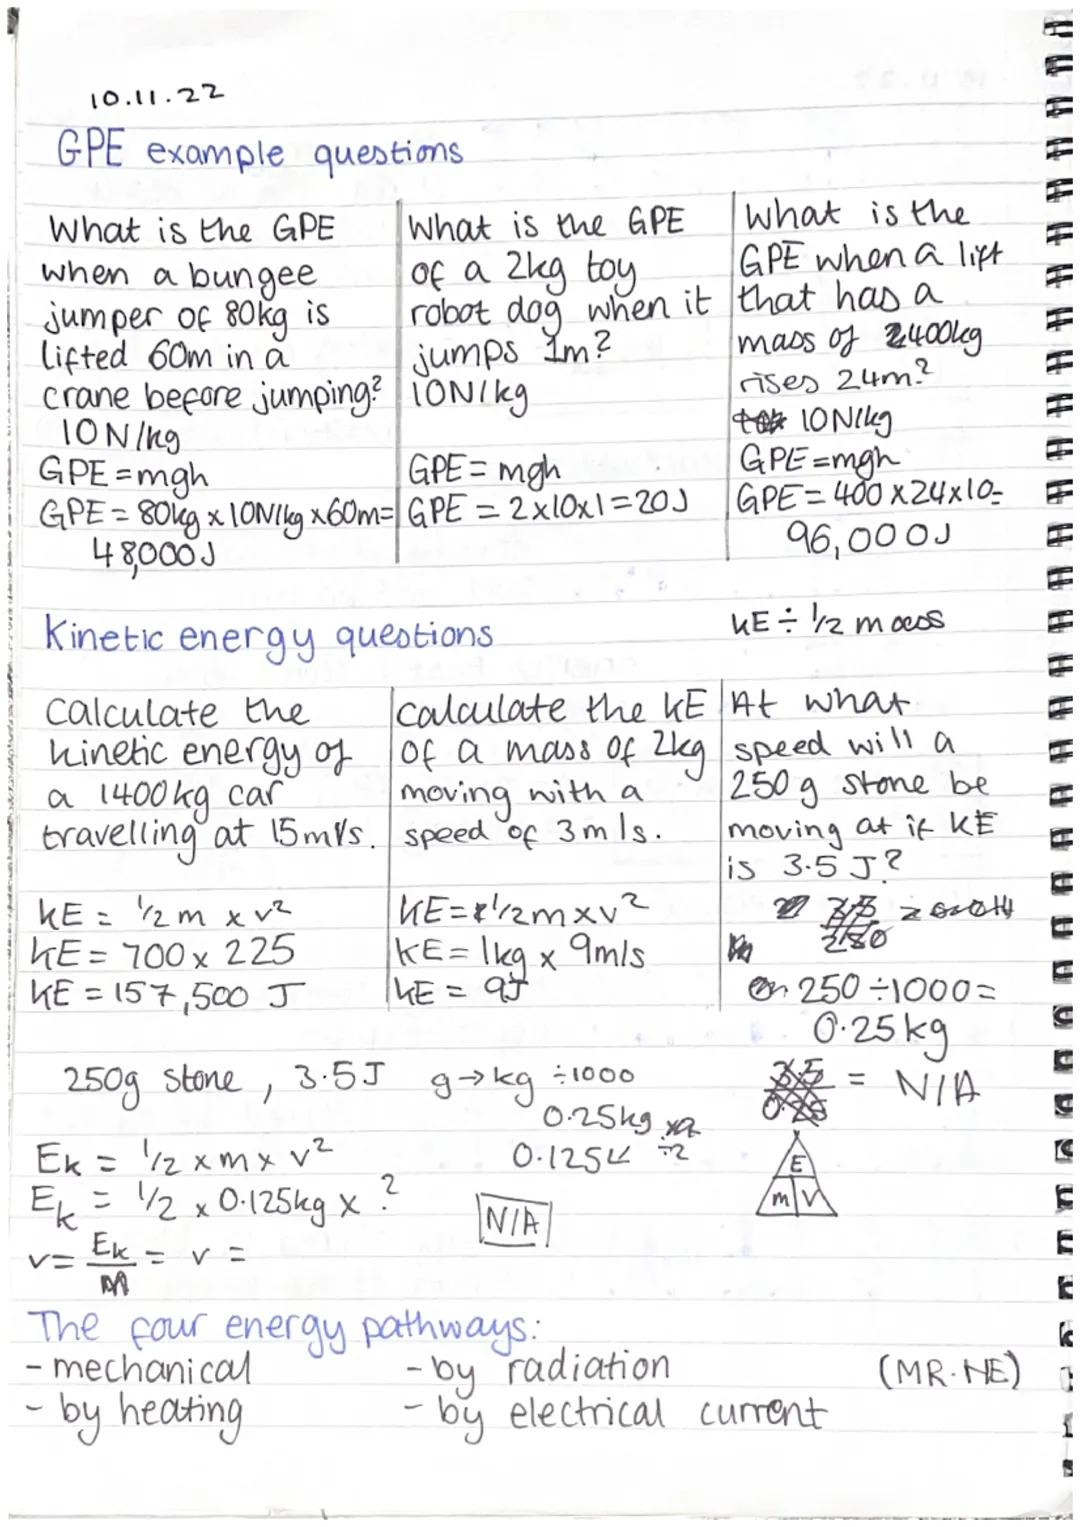 10.11.22
GPE example questions
What is the GPE
when a bungee
jumper of 80kg is
lifted 60m in a
crane before jumping?
10N/kg
GPE = mgh
GPE = 80kg x 10N/kg x 60m =
48,000J
What is the GPE
of a 2kg toy
robot dog when it
jumps 1m?
10N/kg
GPE = mgh
GPE = 2x10x1 = 20J
What is the
GPE when a lift
that has a
mass of 400kg
rises 24m?
10N/kg
GPE = mgh
GPE = 400 x 24 x 10 =
96,000J
Kinetic energy questions
KE ÷ 1/2 mass
Calculate the
kinetic energy of
a 1400kg car
travelling at 15m/s.
KE = 1/2 m x v²
KE = 700 x 225
KE = 157,500 J
Calculate the KE
of a mass of 2kg
moving with a
speed of 3m/s.
KE = 1/2 m x v²
KE = 1kg x 9m/s
KE = 9J
At what
speed will a
250g stone be
moving at if KE
is 3.5 J?
250 ÷ 1000 =
0.25kg
3.5
0.25 = N/A
E
m v
250g stone, 3.5J
g → kg ÷1000
0.25kg
0.125k ÷2
Ek = 1/2 x m x v²
Ek = 1/2 x 0.125kg x ?
N/A
v = Ek/m = v =
The four energy pathways:
- mechanical
- by heating
- by radiation
- by electrical current
(MR.HE)